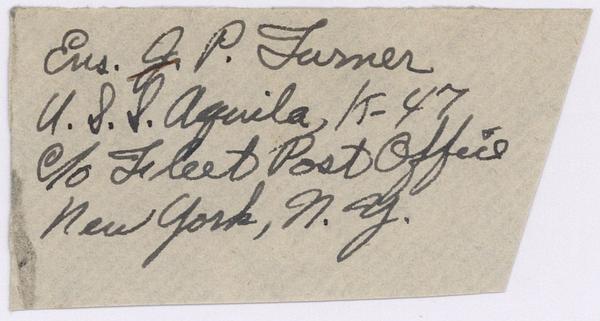 Ens. J. P. Turner
U.S.S. Aquila, K-47
c/o Fleet Post Office
New York, N.Y.